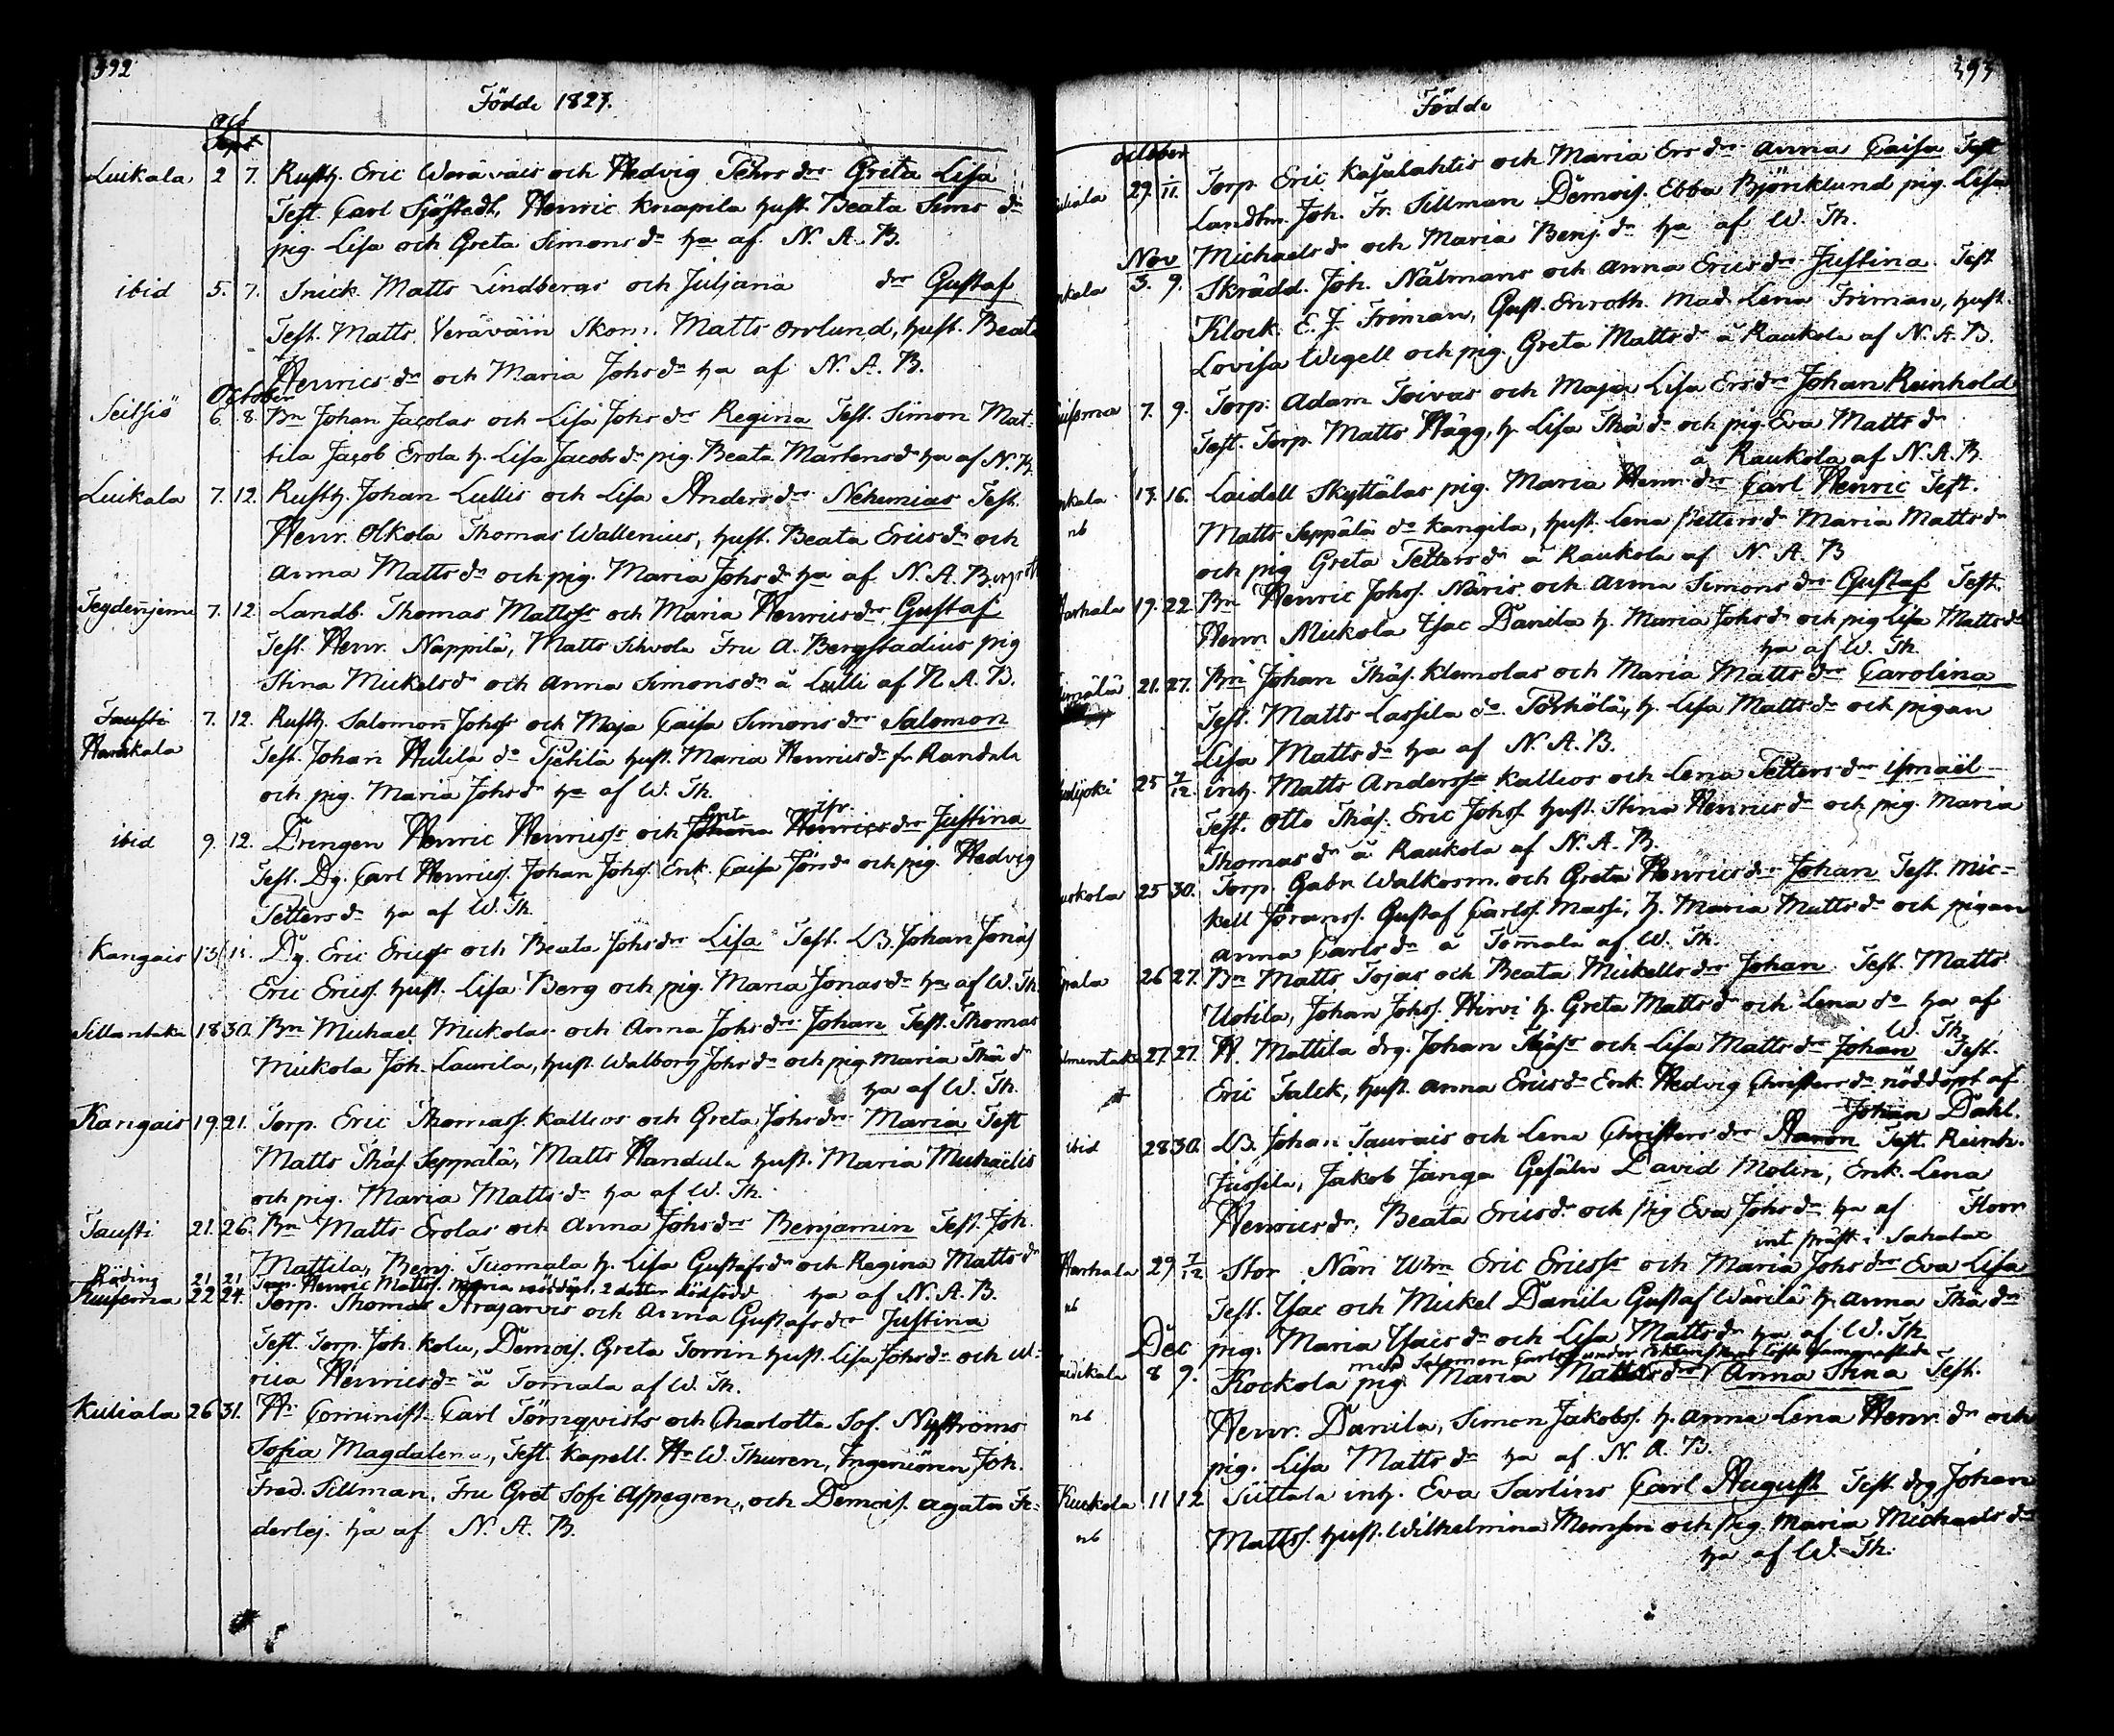 392
Födde 1823.
Oct
Sept
Luikala 2 7. Rusth. Eric Werävais och Hedvig Tehrs dr Greta Lisa
Test. Carl Sjöstedt, Henric Knapila hust. Beata Sims dr
pig. Lisa och Greta Simons dr ha af N. A. B.
ibid 5. 7. Snick. Matts Lindbergs och Juljana drs Gustaf
Test. Matts Yeräväin Skom. Matts Orrlund, hust. Beata
Henrics dr och Maria Johs dr ha af N. A. B.
October
Seitsiö 6. 8. Bn Johan Jacolas och Lisa Johs drs Regina Test. Simon Mat-
tila Jacob Erola h. Lisa Jacobs dr pig. Beata Mårtens dr ha af N. B.
Luikala 7. 12. Rusth. Johan Lullis och Lisa Anders drs Nehemias Test.
Henr. Olkola Thomas Wallenius, hust. Beata Erics dr och
Anna Matts dr och pig. Maria Johs dr ha af N. A. B.
7. 12. Landb. Thomas Mattss och Maria Henrics drs Gustaf
Test. Henr. Nappilä, Matts Sihvola Fru A. Bergstadius pig
Stina Mickels dr och Anna Simons dr å Lulli af N. A. B.
Tausti 7. 12. Rusth. Salomon Johss och Maja Caisa Simons drs Salomon
Handkala Test. Johan Hulila do Tjetilä hust. Maria Henrics dr fr Randula
och pig. Maria Johs dr ha af W. Th.
ibid 9. 12. Drengen Henric Henricss och Greta Johana Henrics drs Justina
Test. Dg. Carl Henricss. Johan Johs. Enk. Caisa Jörs dr och pig. Hedvig
Petters dr ha af W. Th.
Kangais 13 Dg. Eric Ericss och Beata Johs drs Lisa Test. LB. Johan Jonas
Eric Ericss. hust. Lisa Berg och pig. Maria Jonas dr ha af W. Th.
Sillantaka 18 30. Bn Michael Mickolas och Anna Johs drs Johan Test. Thomas
Mickola Joh. Laurila, hust. Walborg Johs dr och pig Maria Thå dr
ha af W. Th.
Kangais 19. 21. Torp. Eric Thomass. Kallios och Greta Johs drs Maria Test
Matts Thås. Seppälä, Matts Handula hust. Maria Michaëlis
och pig. Maria Matts dr ha af W. Th.
Tausti 21. 26. Bn Matts Erolas och Anna Johs drs Benjamin Test. Joh.
Mattila, Benj. Tuomala h. Lisa Gustafs dr och Regina Matts dr
Räding 21 21 Torp. Henric Mattss. Maria nöddöpt, 2 dotter dödfödd ha af N. A. B.
Kuisema 22 24. Torp. Thomas Arajärvis och Anna Gustafs drs Justina
Test. Torp. Joh. Kolu, Demois. Greta Torrin hust. Lisa Johs dr och Ul-
rica Henrics dr å Tommala af W. Th.
Kuliala 26 31. Hr Cominist. Carl Törnqvists och Charlotta Sof. Nyströms
Sofia Magdalena, Test. Kapell. Hr W. Thuren, Ingeniören Joh.
Fred. Sillman, Fru Gret Sofi Aspegren, och Demois. Agata Fe-
derlej. ha af N. A. B.
393
Födde
October
29. 1/11. Torp. Eric Kasulahtis och Maria Ers drs Anna Caisa Test
Landtm. Joh. Fr. Sillman Demois. Ebba Björklund pig. Lisa
Michaels dr och Maria Benj. dr ha af W. Th.
Nov
3. 9. Skrädd. Joh. Nålmans och Anna Erics drs Justina. Test.
Klock. E. J. Friman, Gust. Enroth. Mad. Lena Friman, hust.
Lovisa Wigell och pig. Greta Matts dr å Raukola af N. A. B.
7. 9. Torp. Adam Toivas och Maja Lisa Ers drs Johan Reinhold
Test. Torp. Matts Hägg, h. Lisa Thå dr och pig. Eva Matts dr
å Raukola af N. A. B.
13. 16. Laidell Skyttälas pig. Maria Henr. drs Carl Henric Test.
nb Matts Seppälä do Kangila, hust. Lena Petters dr Maria Matts dr
och pig Greta Petters dr å Raukola af N. A. B
19. 22. Bn Henric Johss. Naris och Anna Simons drs Gustaf Test.
Henr. Mickola Isac Danila h. Maria Johs dr och pig Lisa Matts dr
ha af W. Th.
21. 27. Bn Johan Thås. Klemolas och Maria Matts drs Carolina
Test. Matts Lassila do Pörhölä, h. Lisa Matts dr och pigan
Lisa Matts dr ha af N. A. B.
25 7/12. inh. Matts Anderss Kallios och Lena Petters drs Ismaël
Test. Otto Thås. Eric Johss. hust. Stina Henrics dr och pig. Maria
Thomas dr å Raukola af N. A. B.
25 30. Torp. Gabr. Walkosm. och Greta Henrics drs Johan Test. Mic-
kell Jöranss. Gustaf Carlss. Massi, h. Maria Matts dr och pigan
Anna Carls dr å Tommala af W. Th.
26 27. Bn Matts Tojas och Beata Mickells drs Johan Test. Matts
Uotila, Johan Johss. Hirvi h. Greta Matts dr och Lena do ha af
W. Th.
27. 27. H. Mattila drg. Johan Thåss och Lisa Matts drs Johan Test.
Eric Falck, hust. Anna Erics dr Enk. Hedvig Christers dr nöddöpt af
Johan Dahl.
ibid 28 30. LB. Johan Taurais och Lena Christers drs Aaron Test. Reinh.
Jussila, Jakob Janga Gesälln David Molin, Enk. Lena
Henrics dr, Beata Erics dr och pig Eva Johs dr ha af Floor
int. präst i Sahalax
Harhala 29 7/12 Stor Näri Whn Eric Ericss och Maria Johs drs Eva Lisa
nb Test. Isac och Mickel Danila Gustaf Wärilä h. Anna Thå dr
pig. Maria Isacs dr och Lisa Matts dr ha af W. Th.
Dec
8 9. Kockola pig. Maria Matts drs Anna Stina Test.
nb Henr. Danila, Simon Jakobss. h. Anna Lena Henr. dr och
pig. Lisa Matts dr ha af N. A. B.
Kuckola 11 12 Siittala inh. Eva Sarlins Carl August Test. drg. Johan
nb Mattss. hust. Wilhelmina Monsen och pig. Maria Michaels dr
ha af W. Th.